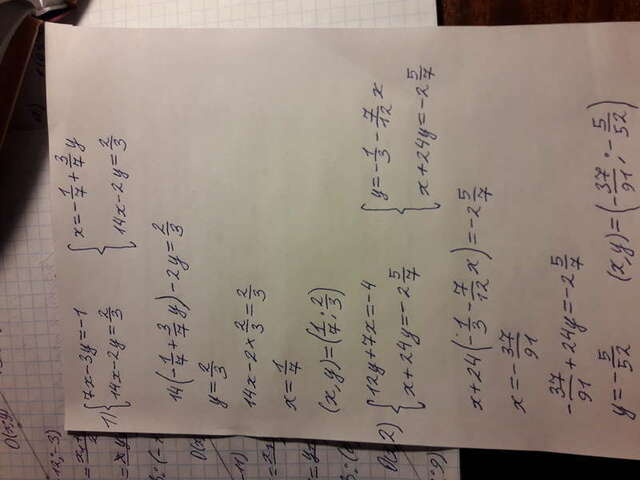 1) { 7x-3y=-1      { x=-1/7+3/7 y
14x-2y=2/3      14x-2y=2/3
14(-1/7+3/7 y)-2y=2/3
y=2/3
14x-2×2/3=2/3
x=1/7
(x,y)=(1/7;2/3)
2) { 12y+7x=-4      { y=-1/3-7/12 x
x+24y=-2 5/7      x+24y=-2 5/7
x+24(-1/3-7/12 x)=-2 5/7
x=-37/91
-37/91+24y=-2 5/7
y=-5/52      (x,y)=(-37/91;-5/52)